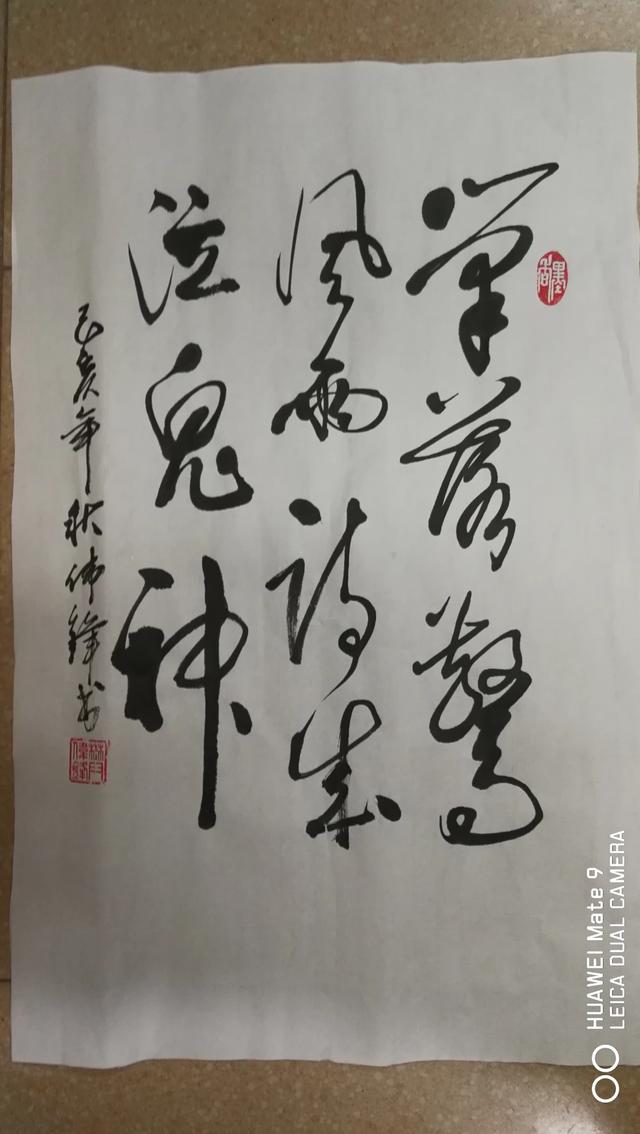 筆落驚
風雨詩成
泣鬼神
己亥年秋伟鋒书
墨
HUAWEI Mate 9
LEICA DUAL CAMERA